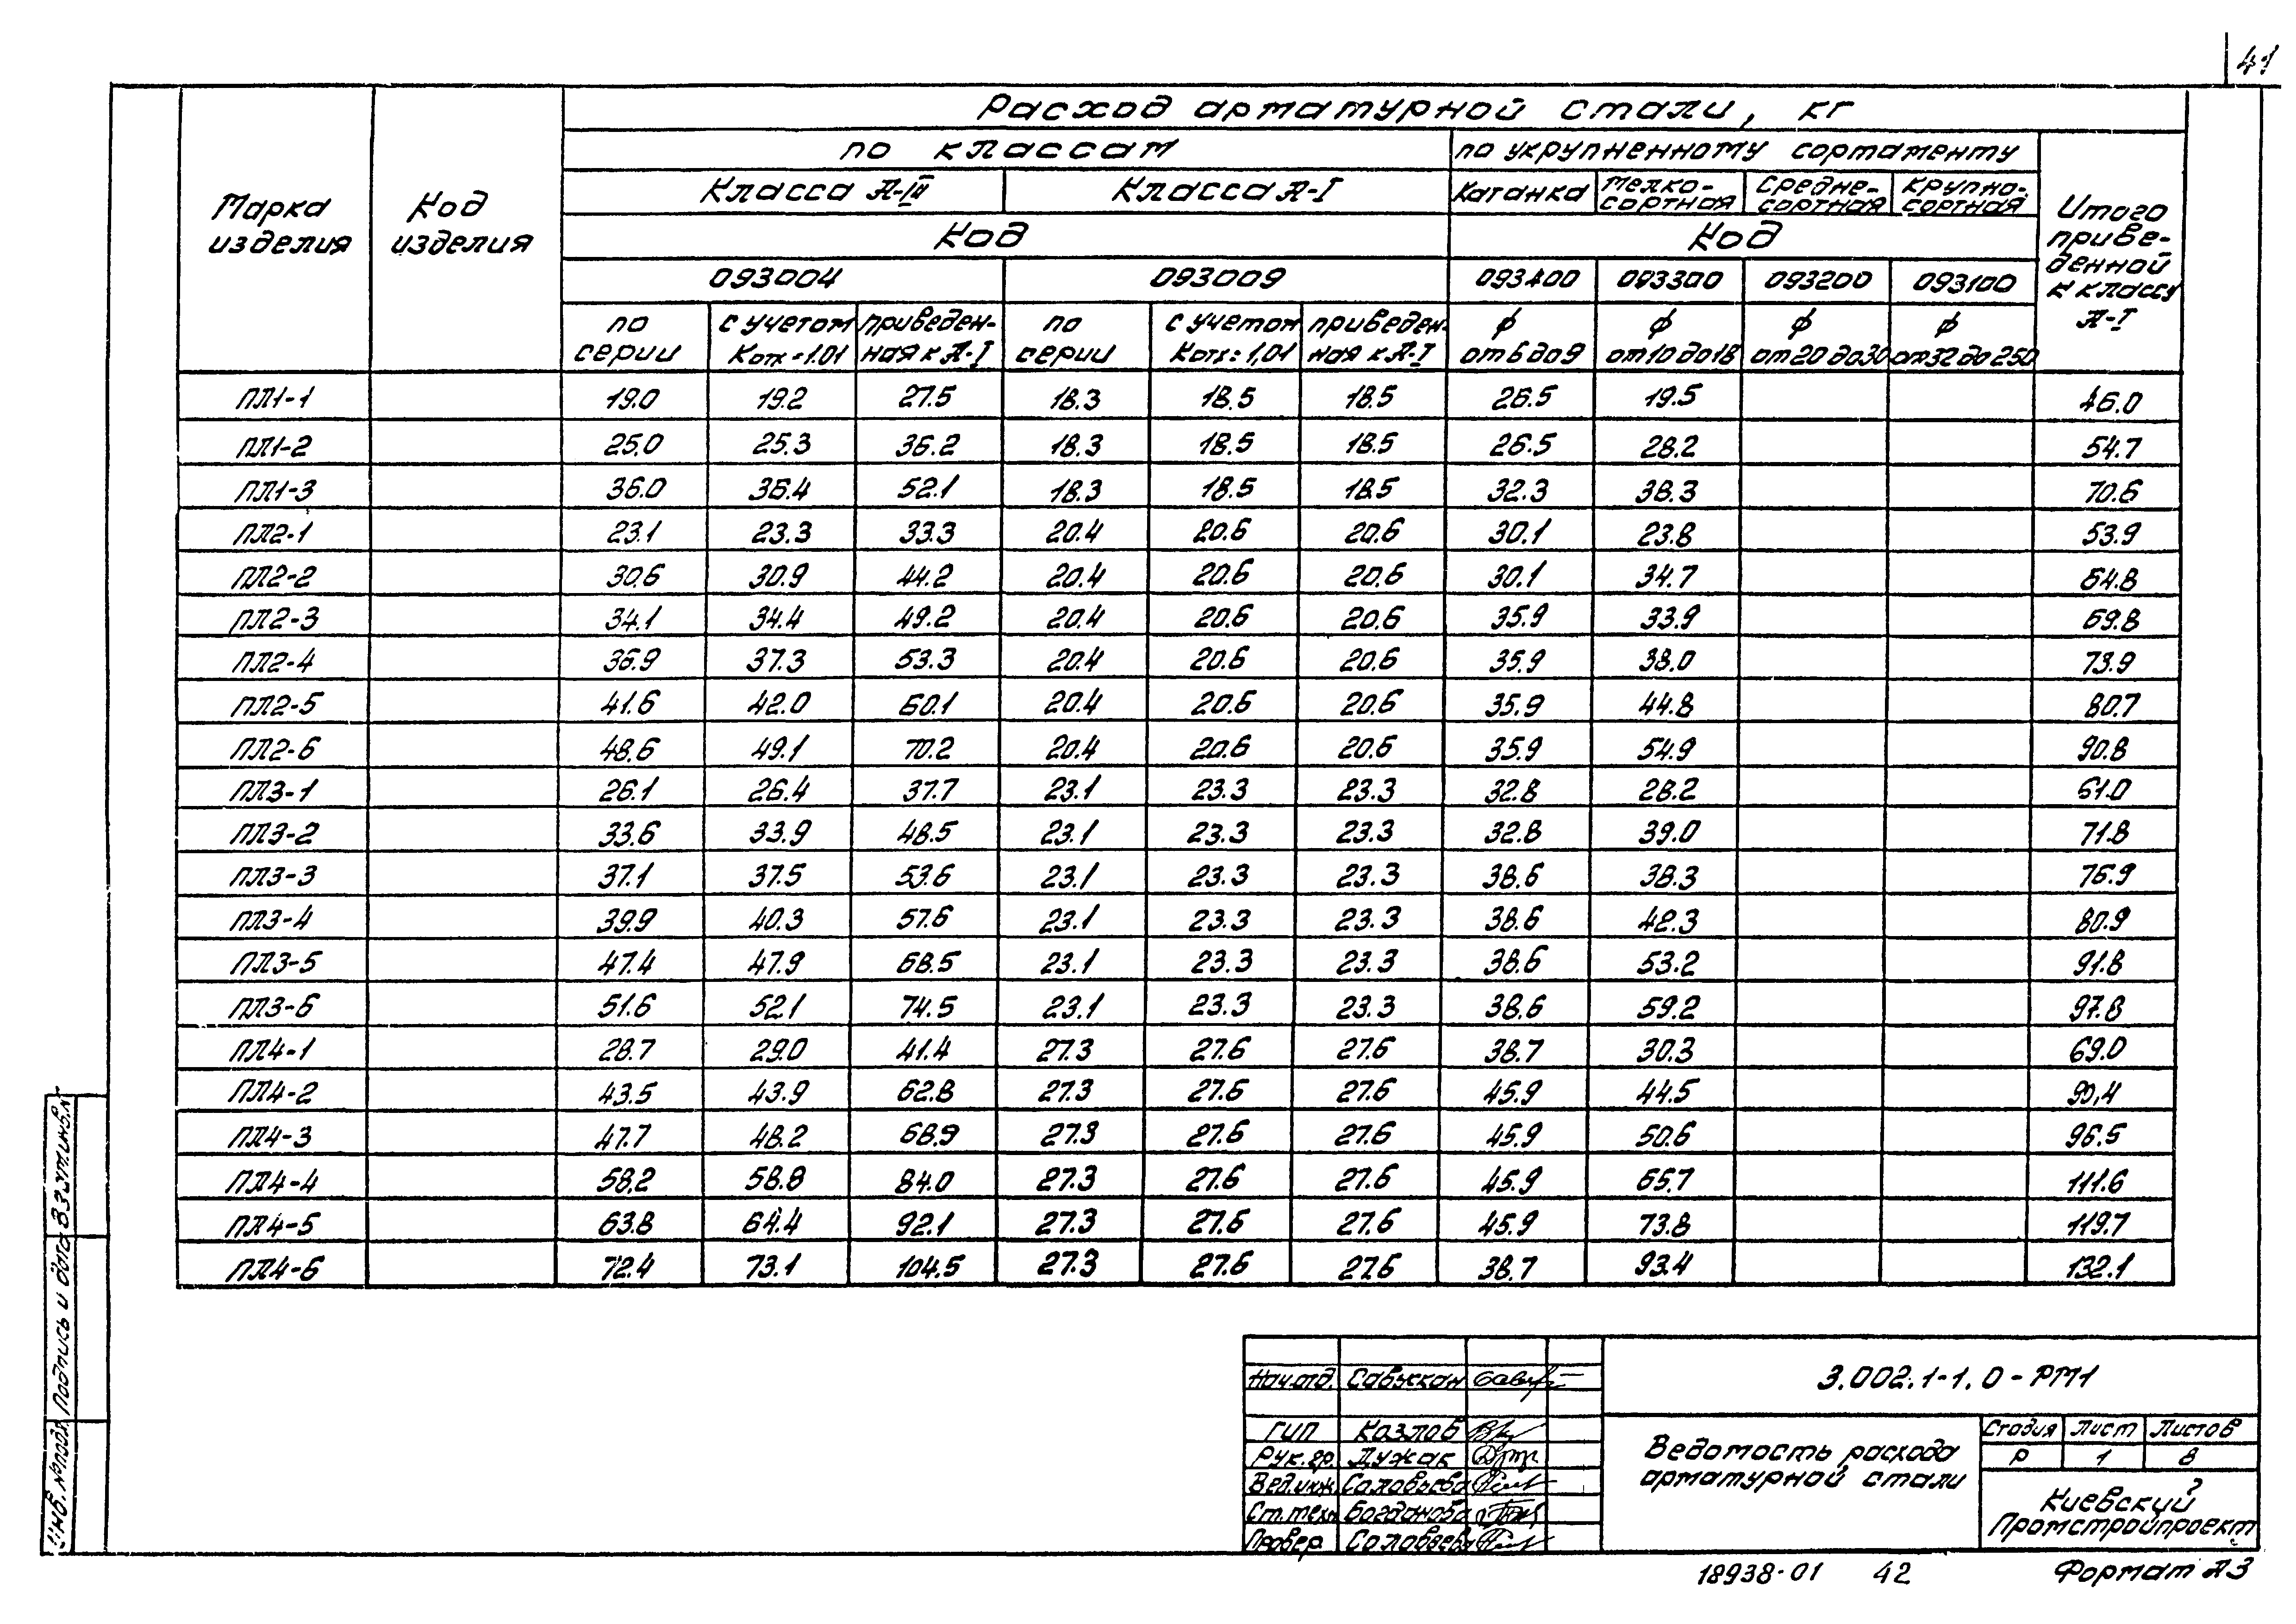 41
Расход арматурной стали, кг
по классам
по укрупненному сортаменту
Марка изделия
Код изделия
Класса А-III
Класса А-I
Катанка
Мелко-сортная
Средне-сортная
Крупно-сортная
Итого приве-денной к классу А-I
Код
Код
093004
093009
093400
093300
093200
093100
по серии
с учетом Котх=1.01
приведен-ная к А-I
по серии
с учетом Котх=1,01
приведен-ная к А-I
ϕ от 6 до 9
ϕ от 10 до 18
ϕ от 20 до 30
ϕ от 32 до 250
ПЛ1-1 19.0 19.2 27.5 18.3 18.5 18.5 26.5 19.5 46.0
ПЛ1-2 25.0 25.3 36.2 18.3 18.5 18.5 26.5 28.2 54.7
ПЛ1-3 36.0 36.4 52.1 18.3 18.5 18.5 32.3 38.3 70.6
ПЛ2-1 23.1 23.3 33.3 20.4 20.6 20.6 30.1 23.8 53.9
ПЛ2-2 30.6 30.9 44.2 20.4 20.6 20.6 30.1 34.7 64.8
ПЛ2-3 34.1 34.4 49.2 20.4 20.6 20.6 35.9 33.9 69.8
ПЛ2-4 36.9 37.3 53.3 20.4 20.6 20.6 35.9 38.0 73.9
ПЛ2-5 41.6 42.0 60.1 20.4 20.6 20.6 35.9 44.8 80.7
ПЛ2-6 48.6 49.1 70.2 20.4 20.6 20.6 35.9 54.9 90.8
ПЛ3-1 26.1 26.4 37.7 23.1 23.3 23.3 32.8 28.2 61.0
ПЛ3-2 33.6 33.9 48.5 23.1 23.3 23.3 32.8 39.0 71.8
ПЛ3-3 37.1 37.5 53.6 23.1 23.3 23.3 38.6 38.3 76.9
ПЛ3-4 39.9 40.3 57.6 23.1 23.3 23.3 38.6 42.3 80.9
ПЛ3-5 47.4 47.9 68.5 23.1 23.3 23.3 38.6 53.2 91.8
ПЛ3-6 51.6 52.1 74.5 23.1 23.3 23.3 38.6 59.2 97.8
ПЛ4-1 28.7 29.0 41.4 27.3 27.6 27.6 38.7 30.3 69.0
ПЛ4-2 43.5 43.9 62.8 27.3 27.6 27.6 45.9 44.5 90,4
ПЛ4-3 47.7 48.2 68.9 27.3 27.6 27.6 45.9 50.6 96.5
ПЛ4-4 58.2 58.8 84.0 27.3 27.6 27.6 45.9 65.7 111.6
ПЛ4-5 63.8 64.4 92.1 27.3 27.6 27.6 45.9 73.8 119.7
ПЛ4-6 72.4 73.1 104.5 27.3 27.6 27.6 38.7 93.4 132.1
Инв.№подл. Подпись и дата Взам.инв.№
Нач.отд. Савускан
ГИП Козлов
Рук.гр. Лужак
Вед.инж. Соловьева
Ст.техн Богданова
Провер. Соловьева
3.002.1-1.0-РМ1
Ведомость расхода
арматурной стали
Стадия Лист Листов
Р 1 8
Киевский
Промстройпроект
18938-01 42
Формат А3